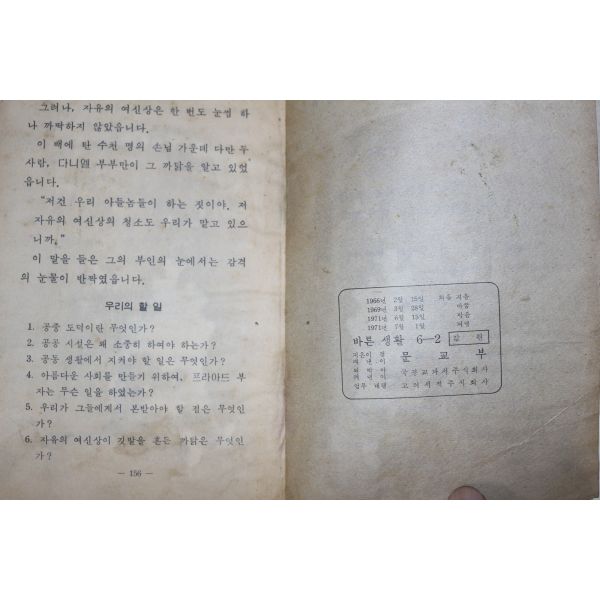 그러나, 자유의 여신상은 한 번도 눈썹 하
나 까딱하지 않았읍니다.
이 배에 탄 수천 명의 손님 가운데 다만 두
사람, 다니엘 부부만이 그 까닭을 알고 있었
읍니다.
“저건 우리 아들놈들이 하는 짓이야. 저
자유의 여신상의 청소도 우리가 맡고 있으
니까.”
이 말을 들은 그의 부인의 눈에서는 감격
의 눈물이 반짝였읍니다.
우리의 할 일
1. 공중 도덕이란 무엇인가?
2. 공공 시설은 왜 소중히 하여야 하는가?
3. 공동 생활에서 지켜야 할 일은 무엇인가?
4. 아름다운 사회를 만들기 위하여, 프라아드 부
자는 무슨 일을 하였는가?
5. 우리가 그들에게서 본받아야 할 점은 무엇인
가?
6. 자유의 여신상이 깃발을 흔든 까닭은 무엇인
가?
— 156 —
1966년 2월 15일 처음 지음
1969년 3월 28일
1971년 6월 15일 박음
1971년 7월 1일 펴냄
바른 생활 6—2
문 교 부
국정교과서주식회사